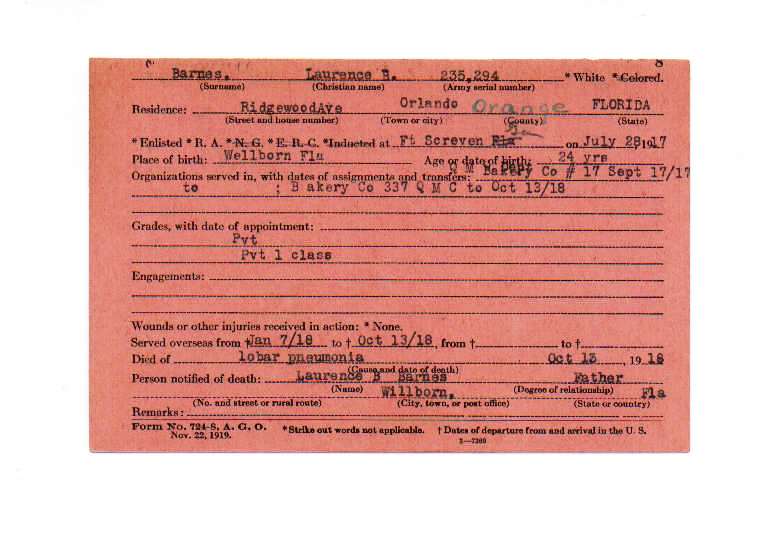 Barnes, Laurence B. 235,294 * White * Colored.
(Surname) (Christian name) (Army serial number)
Residence: RidgewoodAve Orlando Orange FLORIDA
(Street and house number) (Town or city) (County) (State)
* Enlisted * R. A. * N. G. * E. R. C. * Inducted at Ft Screven Fla Ga on July 28 1917
Place of birth: Wellborn Fla Age or date of birth: 24 yrs
Organizations served in, with dates of assignments and transfers: Q M Dept Bakery Co # 17 Sept 17/17
to ; B akery Co 337 Q M C to Oct 13/18
Grades, with date of appointment:
Pvt
Pvt 1 class
Engagements:
Wounds or other injuries received in action: * None.
Served overseas from † Jan 7/18 to † Oct 13/18, from † to †
Died of lobar pneumonia Oct 13 , 19 18
(Cause and date of death)
Person notified of death: Laurence B Barnes Father
(Name) (Degree of relationship)
Willborn, Fla
(No. and street or rural route) (City, town, or post office) (State or country)
Remarks:
Form No. 724-8, A. G. O. * Strike out words not applicable. † Dates of departure from and arrival in the U. S.
Nov. 22, 1919. 3—7369